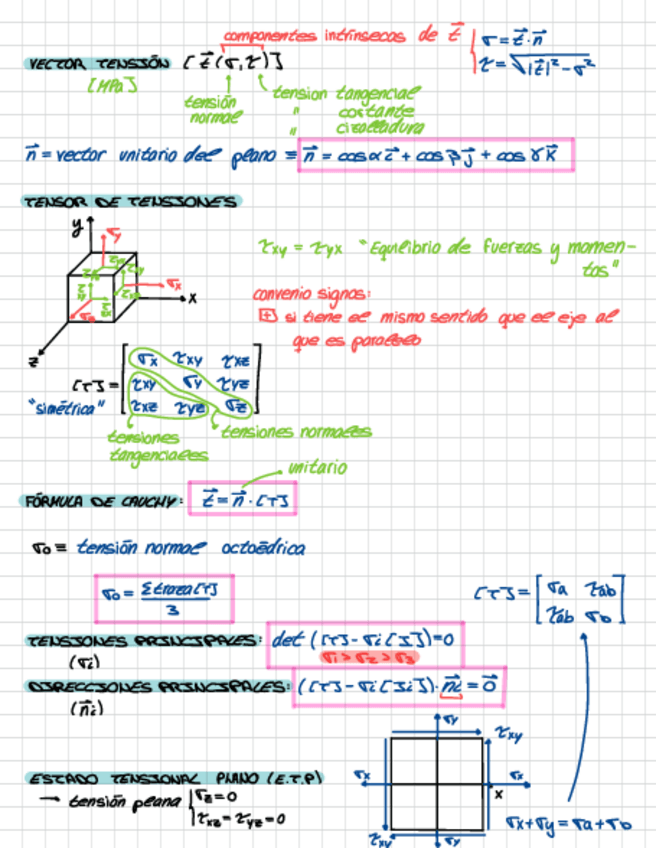 componentes intrínsecas de t⃗ | σ = t⃗·n⃗
VECTOR TENSIÓN [t⃗(σ,τ)] | τ = √|t⃗|² - σ²
[MPa]
tensión normal
tension tangencial
" cortante
" cizalladura
n⃗ = vector unitario del plano ≡ n⃗ = cosα i⃗ + cosβ j⃗ + cosγ k⃗
TENSOR DE TENSIONES
y σy
τxy = τyx "Equilibrio de fuerzas y momentos"
σx
x
z
convenio signos:
[+] si tiene el mismo sentido que el eje al
que es paralelo
[τ] = [σx τxy τxz
τxy σy τyz
τxz τyz σz]
"simétrica"
tensiones tangenciales
tensiones normales
unitario
FÓRMULA DE CAUCHY: t⃗ = n⃗·[τ]
σo ≡ tensión normal octaédrica
σo = Σtraza[τ] / 3
[τ] = [σa τab
τab σb]
TENSIONES PRINCIPALES: det([τ] - σi[I]) = 0
(σi) σ1 > σ2 > σ3
DIRECCIONES PRINCIPALES: ([τ] - σi[Ii])·n⃗i = 0⃗
(n⃗i)
σy
τxy
ESTADO TENSIONAL PLANO (E.T.P)
σx σx
x
→ tensión plana | σz = 0
τxz = τyz = 0
τxy σy
σx + σy = σa + σb